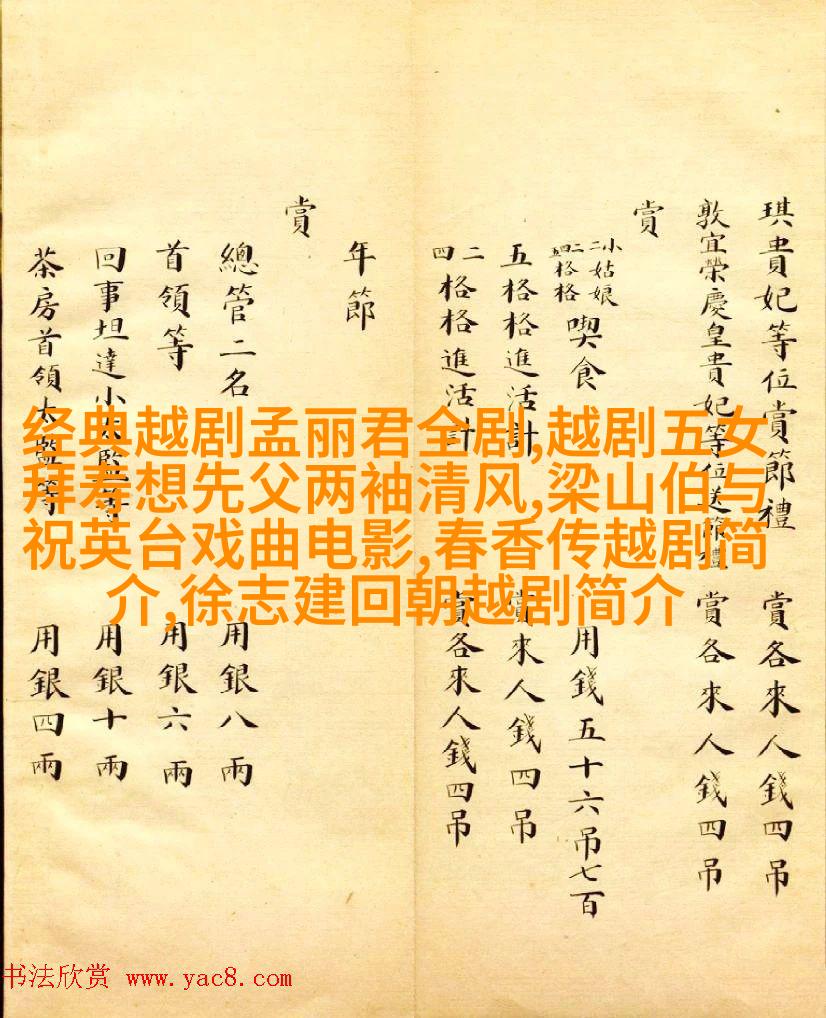 琪貴妃等位賞節禮 賞各來人錢四吊
敦宜榮慶皇貴妃等位送節禮 賞各來人錢四吊
賞
小姑娘
二二
四格格
格格
喫食 用錢五十六吊七百
五格格進活計 賞來人錢四吊
二四格格進活計 賞各來人錢四吊
年節
賞
總管二名 用銀八兩
首領等 用銀六兩
回事坦達小太監等 用銀十兩
茶房首領太監等 用銀四兩
经典越剧孟丽君全剧,越剧五女
拜寿想先父两袖清风,梁山伯与
祝英台戏曲电影,春香传越剧简
介,徐志建回朝越剧简介
书法欣赏 www.yac8.com